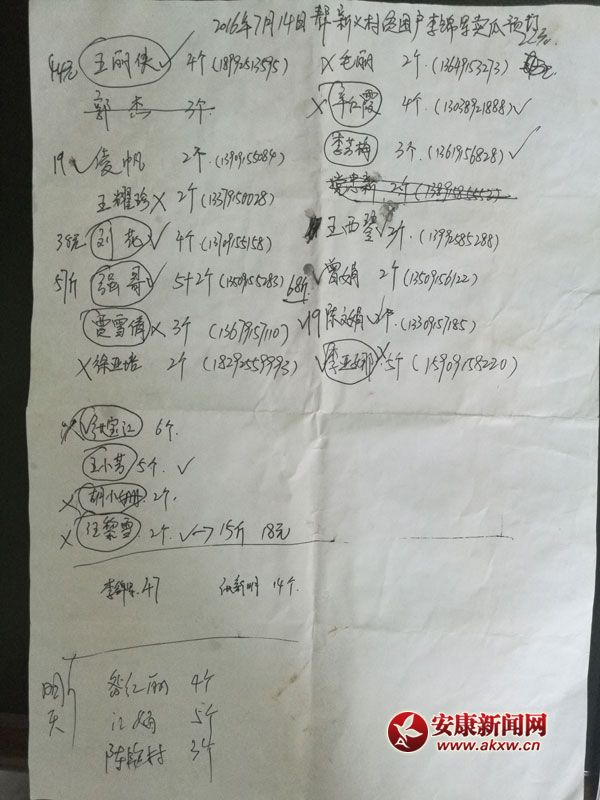 2016年7月14日帮新义村贫困户李锦军卖瓜预订
44元 王丽侠 ✓ 4个(18992513595)
郭杰 3个
19 ✓ 凌帆 2个(13909155084)
王耀珍 × 2个(13379150028)
38元 刘花 ✓ 4个(13709155158)
57斤 强哥 ✓ 5+2个(13509155283) 68斤
贾雪倩 × 3个(13679157110)
× 徐亚培 2个(18292559993)
× 毛丽 2个(13649153273)
× 辛红霞 4个(13038921888) ✓
李芳梅 3个(13619156828) ✓
王西莹 ✓ 2个(13992585288)
✓ 曾娟 2个(13509156122)
19 陈文娟 ✓ 2个(13309157185)
✓ 李亚娜 × 5个(15909158220)
张宝江 6个
王小芳 5个 ✓
× 胡小册 2个
× 汪黎雪 2个 ✓ → 15斤 18元
李锦军 47 14个
明天
红丽 4个
江娟 5个
陈 村 3个
安康新闻网
www.akxw.cn